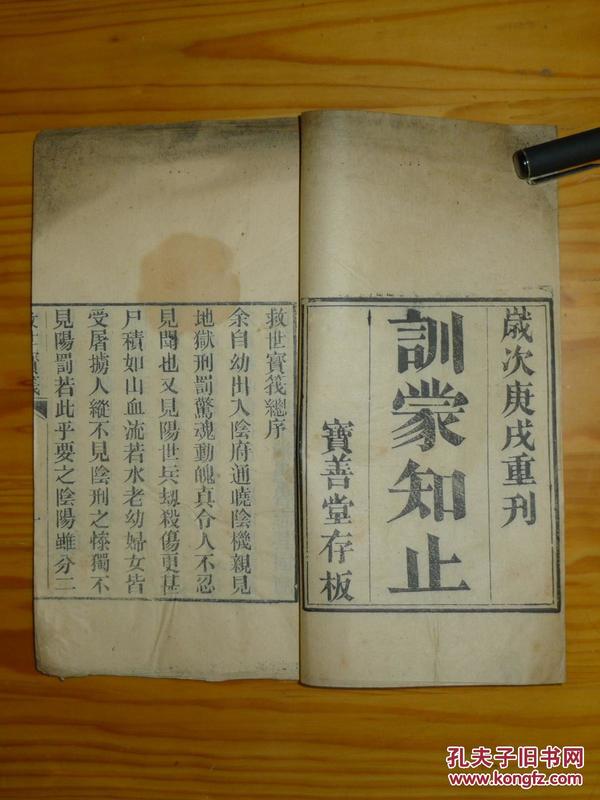 歲次庚戌重刊
訓蒙知止
寶善堂存板
救世寶筏總序
余自幼出入陰府通曉陰機親見
地獄刑罰驚魂動魄真令人不忍
見聞也又見陽世兵劫殺傷更甚
尸積如山血流若水老幼婦女皆
受屠擄人縱不見陰刑之慘獨不
見陽罰若此乎要之陰陽雖分二
救世寶筏
一
孔夫子旧书网
www.kongfz.com